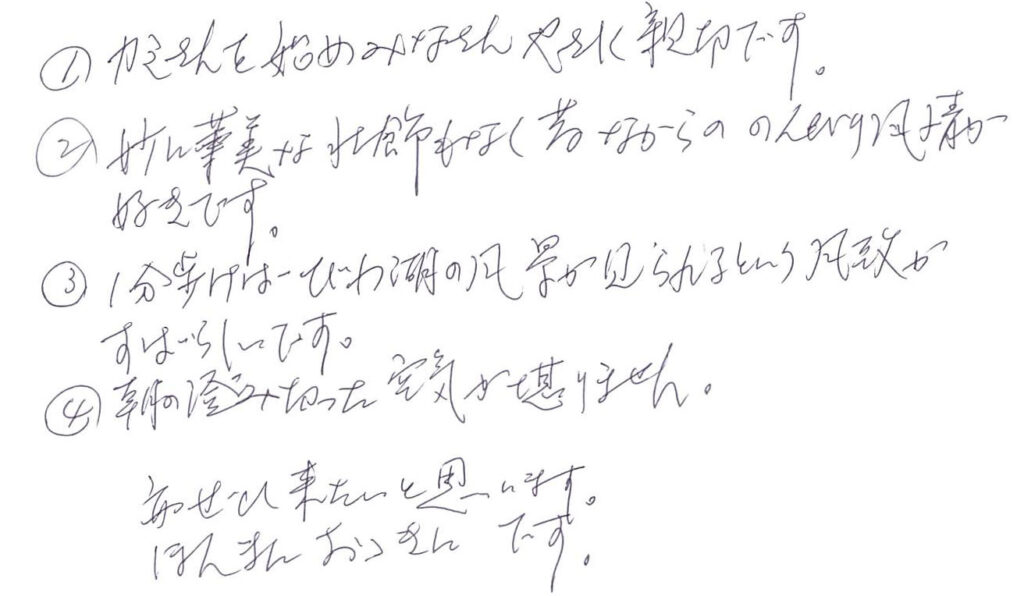 ① カミさんを始めみなさんやさしく親切です。
② 妙に華美な装飾もなく昔ながらののんびり風情が
好きです。
③ 1分歩けばびわ湖の風景が見られるという風致が
すばらしいです。
④ 朝の澄み切った空気が堪りません。
ぜひ来たいと思います。
ほんまおおきに です。